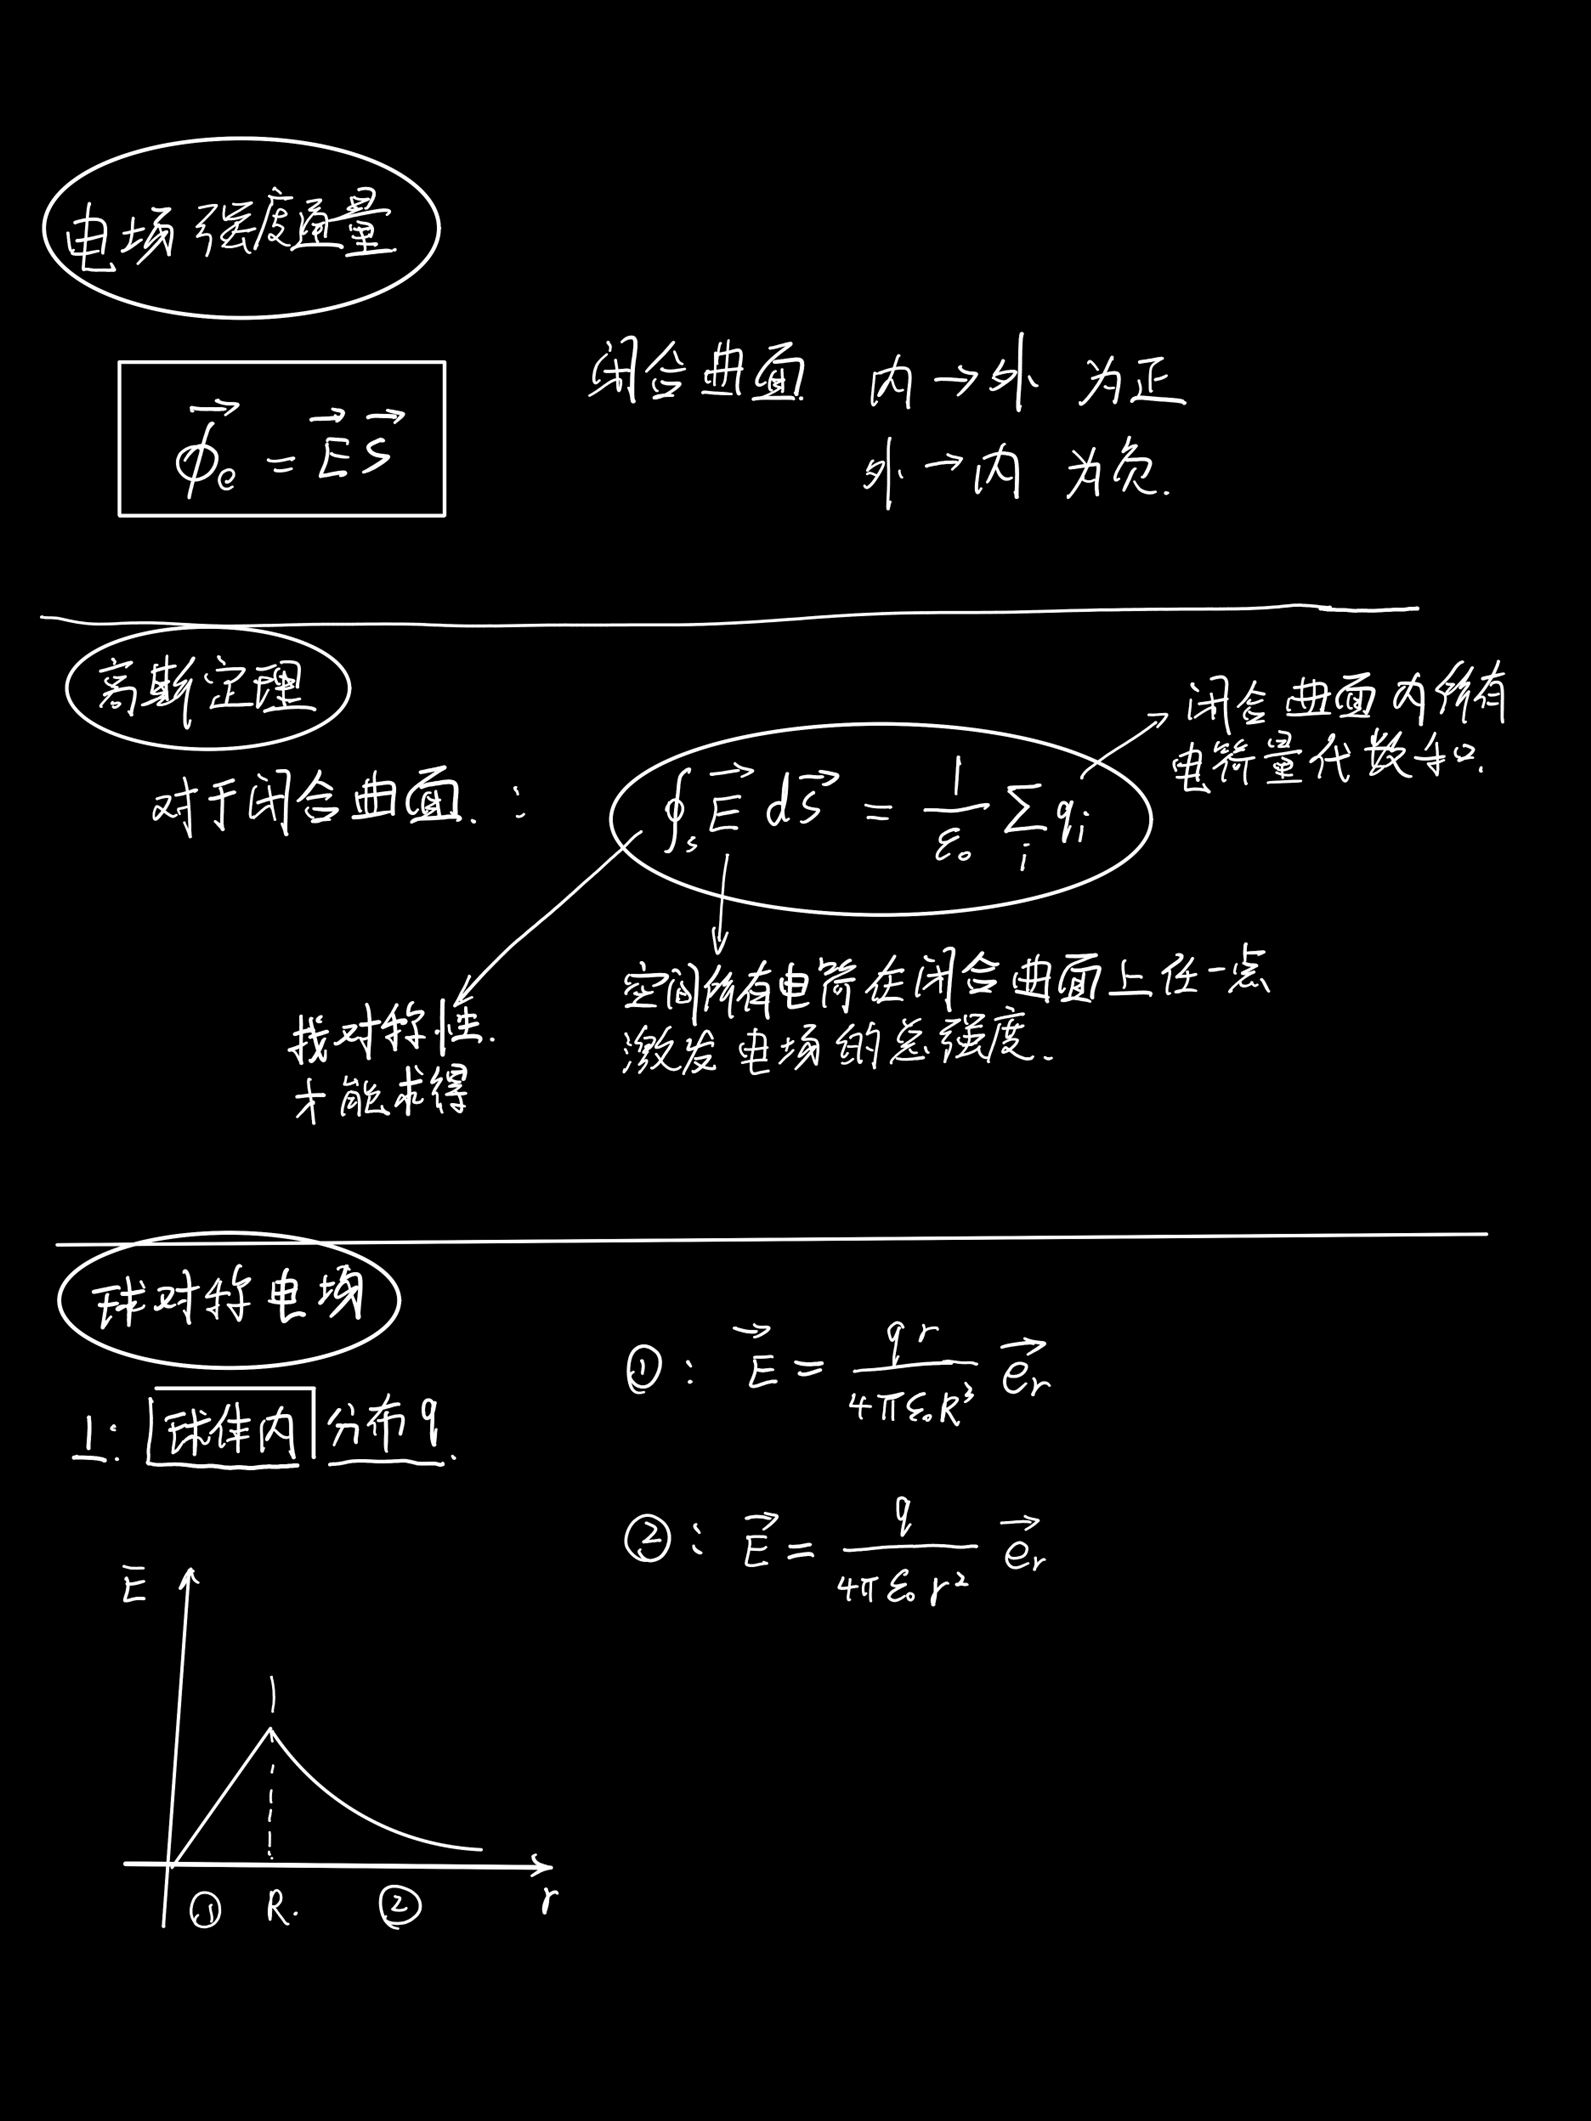 电场强度通量
$\vec{\phi_e} = \vec{E}\vec{S}$
闭合曲面 内→外 为正
外→内 为负.
高斯定理
对于闭合曲面.:
$\oint_s \vec{E} d\vec{s} = \frac{1}{\varepsilon_0} \sum_i q_i$
闭合曲面内所有
电荷量代数和.
找对称性.
才能求得
空间所有电荷在闭合曲面上任一点
激发电场的总强度.
球对称电场
1: 球体内 分布q.
①: $\vec{E} = \frac{qr}{4\pi\varepsilon_0 R^3} \vec{e_r}$
②: $\vec{E} = \frac{q}{4\pi\varepsilon_0 r^2} \vec{e_r}$
$\bar{E}$
① R. ② r